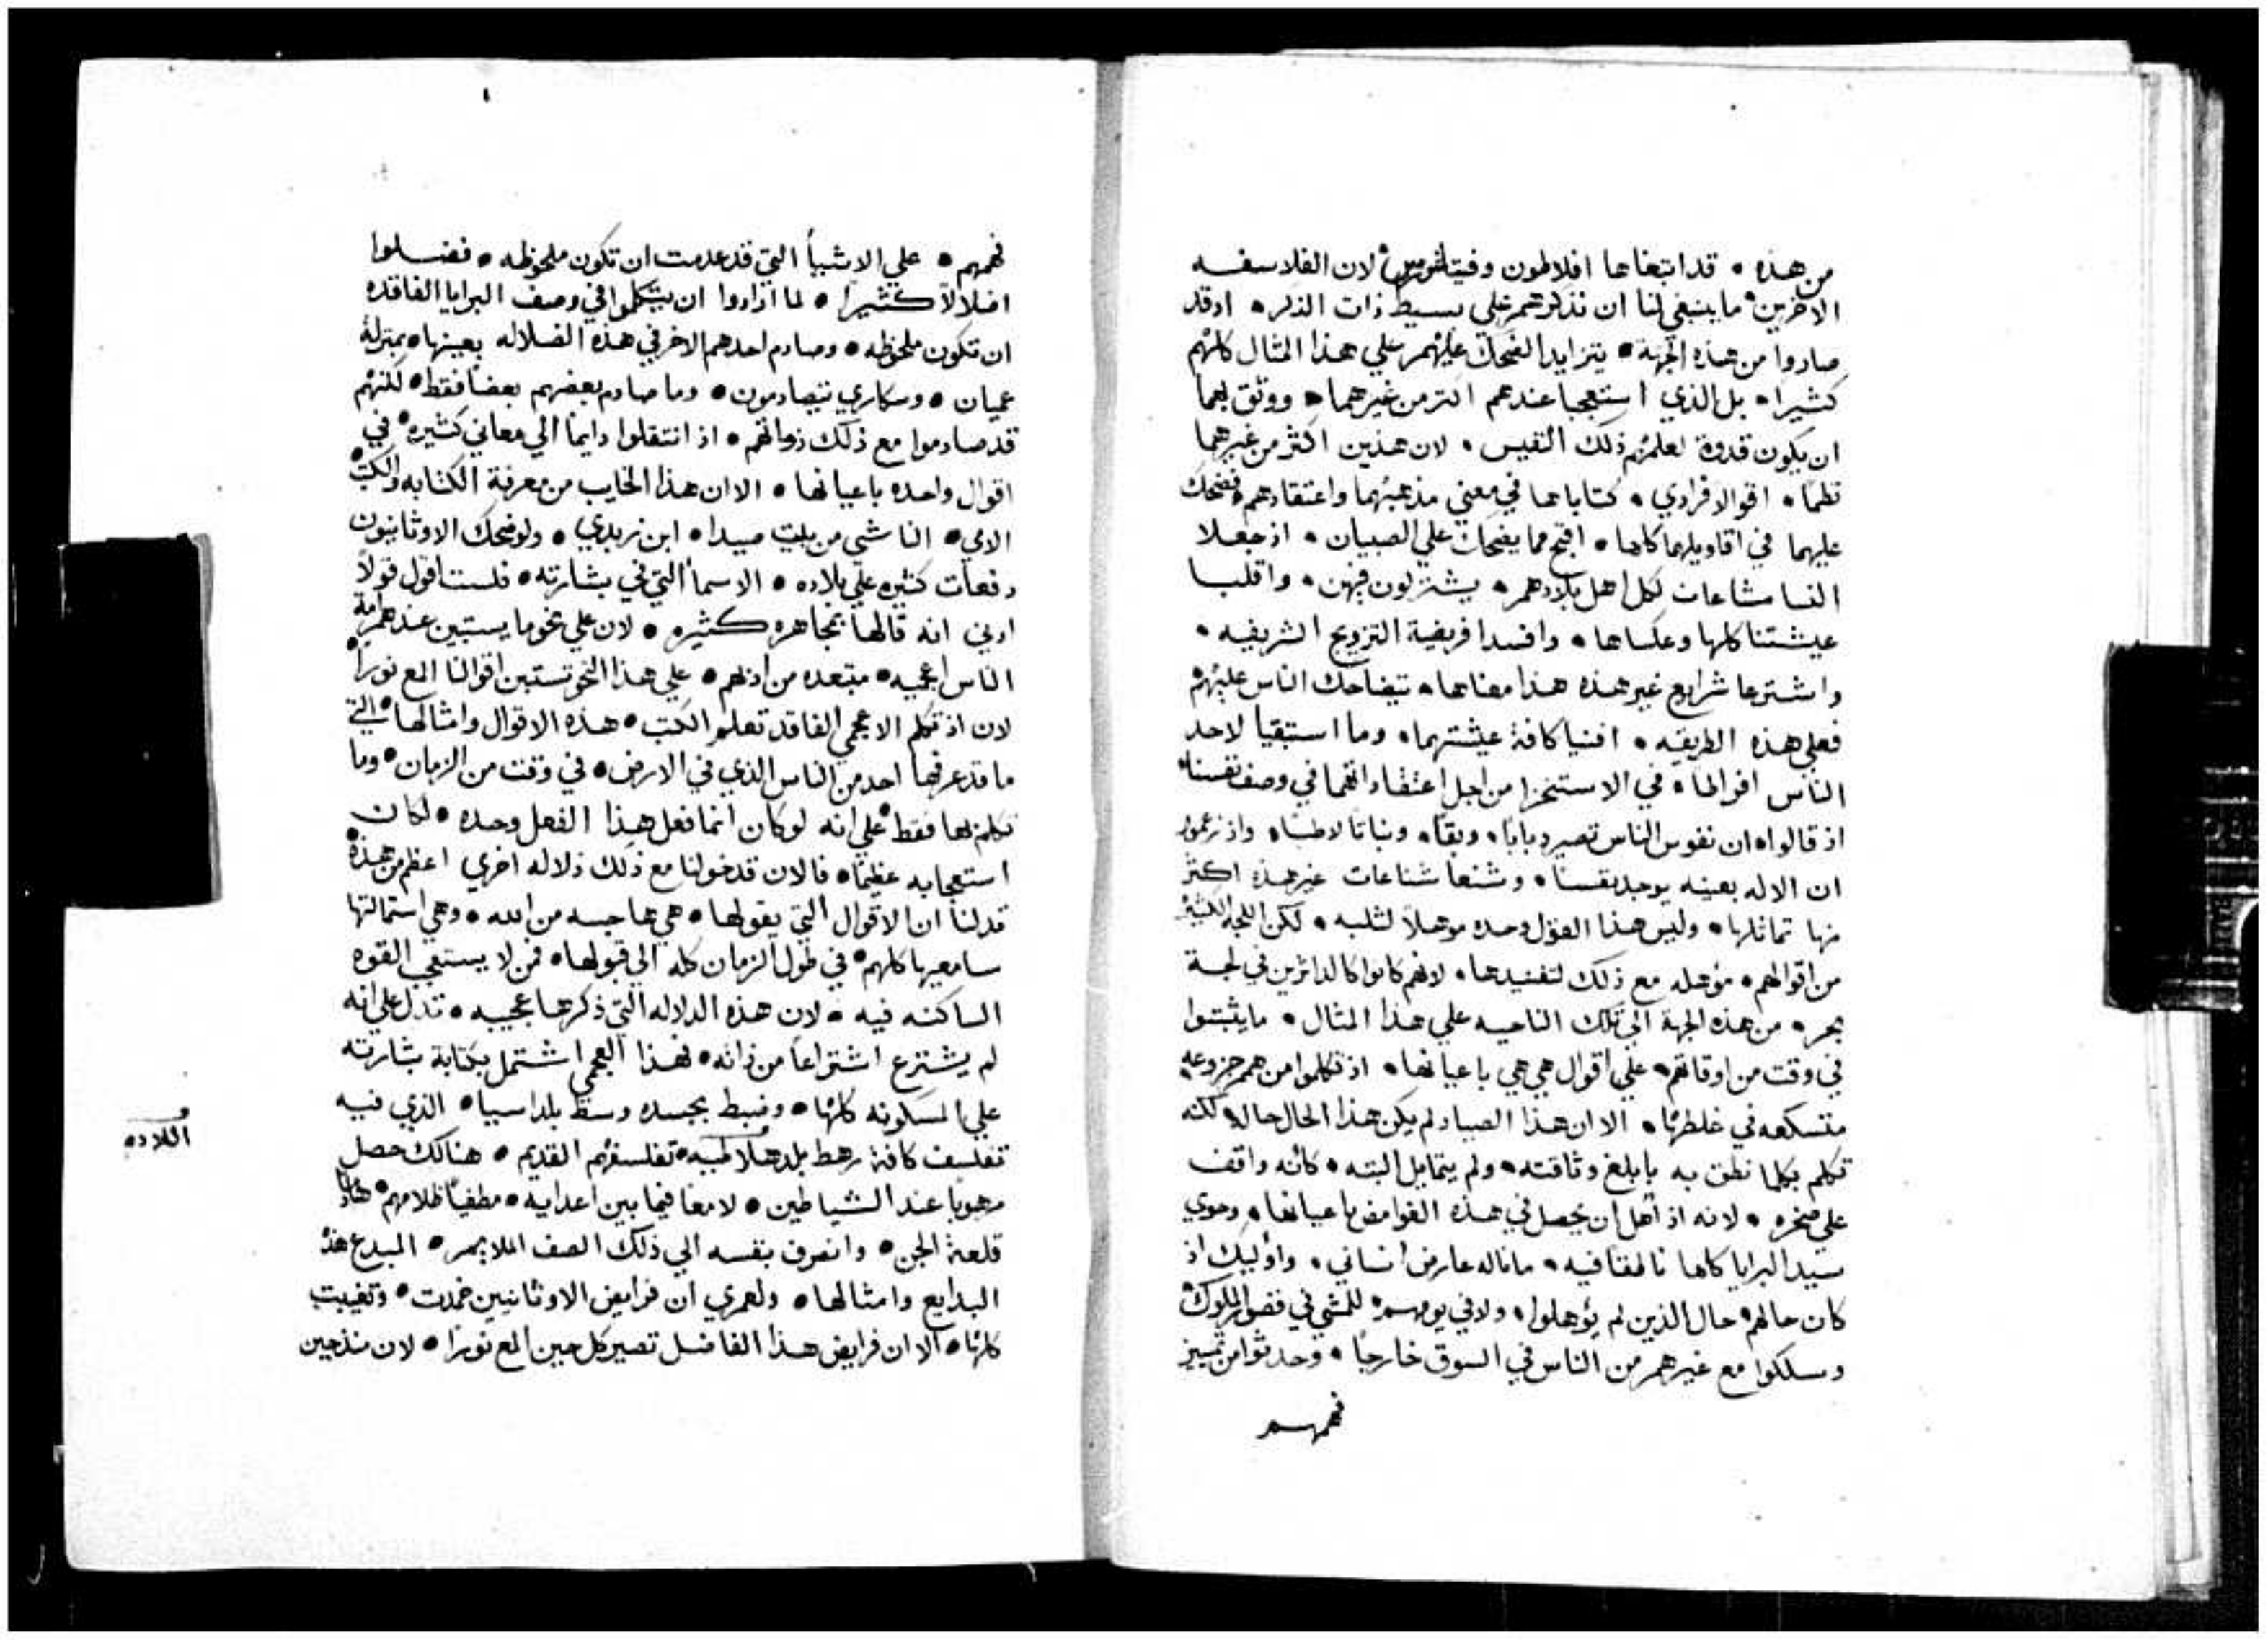 من هذه • قد ابتغاها افلاطون وفيثاغورس • لان الفلاسفه
الاخرين • ما ينبغي لنا ان نذكرهم علي بسيط ذات الذكر • اذ قد
صاروا من هذه الجهة • يتزايد الضحك عليهم علي هذا المثال كلهم
كثيرا • بل الذي استعجبا عندهم اكثر من غيرهما • ووثق بهما
ان يكون قدوة لعلمهم ذلك النفيس • لان هذين اكثر من غيرهما
نظما • اقوالا فرادي • كتاباهما في معني مذهبهما واعتقادهم • فضحك
عليهما في اقاويلهما كلها • اقبح مما يضحك علي الصبيان • اذ جعلا
النسا مشاعات لكل اهل بلادهم • يشتركون فيهن • واقلبا
عيشتنا كلها وعكساها • وافسدا فريضة التزويج الشريفه •
واشترعا شرايع غير هذه هذا معناها • تيضاحك الناس عليهم
فعلي هذه الطريقه • افنيا كافة عيشتهما • وما استبقيا لاحد
الناس افراطا • في الاستخزا من اجل اعتقاداتهما في وصف نفسنا •
اذ قالوا • ان نفوس الناس تصير دبابا • وبقا • ونباتا لاطئا • واذ زعموا
ان الاله بعينه يوجد نفسنا • وشنعا شناعات غير هذه اكثر
منها تماثلها • وليس هذا القول وحده موهلا لثلبه • لكن اللجه الكثيره
من اقوالهم • موهله مع ذلك لتفنيدها • لانهم كانوا كالدائرين في لجة
بحر • من هذه الجهة الي تلك الناحيه علي هذا المثال • ما يثبتوا
في وقت من اوقاتهم • علي اقوال هي هي باعيانها • اذ تكلموا من همم جزوعه
متسكعه في غلطها • الا ان هذا الصياد لم يكن هذا الحال حاله • لكنه
تكلم بكلما نطق به بابلغ وثاقته • ولم يتمايل البته • كانه واقف
علي صخره • لانه اذ اهل ان يحصل في هذه الغوامض باعيانها • وحوي
سيد البرايا كلها ناطقا فيه • ما ناله عارض انساني • واوليك اذ
كان حالهم حال الذين لم يوهلوا • ولا في يومهم • للمشي في قصور الملوك •
وسلكوا مع غيرهم من الناس في السوق خارجا • وحدثوا من تمييز
فهمهم
فهمهم • علي الاشيأ التي قد عدمت ان تكون ملحوظه • فضلوا
اضلالا كثيرا • لما ارادوا ان يتكلموا في وصف البرايا الفاقده
ان تكون ملحوظه • وصادم احدهم الاخر في هذه الضلاله بعينها • بمنزلة
عميان • وسكاري يتصادمون • وما صادم بعضهم بعضا فقط • لكنهم
قد صادموا مع ذلك ذواتهم • اذ انتقلوا دايما الي معاني كثيره • في
اقوال واحده باعيانها • الا ان هذا الخايب من معرفة الكتابه والكتب •
الامي • الناشي من بيت صيدا • ابن زبدي • ولو ضحك الاوثانيون
دفعات كثيره علي بلاده • الاسمأ التي في بشارته • فلست اقول قولا
ادني انه قالها بمجاهره كثيره • لان علي نحو ما يستبين عندهم امة
الناس اعجميه • مبتعده من ادبهم • علي هذا النحو تستبين اقوالنا المع نورا •
لان اذ تكلم الاعجمي الفاقد تعلم الكتب • هذه الاقوال وامثالها • التي
ما قد عرفها احد من الناس الذي في الارض • في وقت من الزمان • وما
تكلم بها فقط • علي انه لو كان انما فعل هذا الفعل وحده • لكان
استعجابه عظيما • فالان قد خولنا مع ذلك دلاله اخري اعظم من هذه •
قد لنا ان الاقوال التي يقولها • هي هاجسه من الله • وهي استمالتها
سامعيها كلهم • في طول الزمان كله الي قبولها • فمن لا يستعجب القوه
الساكنه فيه • لان هذه الدلاله التي ذكرها عجيبه • تدل علي انه
لم يشترع اشتراعا من ذاته • فهذا العجمي اشتمل بكتابة بشارته
علي المسكونه كلها • وضبط بجسده وسط بلد اسيا • الذي فيه
تفلسف كافة رهط بلد هلاطيه • تفلسفهم القديم • هنالك حصل
مرهوبا عند الشياطين • لامعا فيما بين اعدايه • مطفيا ظلامهم • هادما
قلعة الجن • وانصرف بنفسه الي ذلك الصف الملايم • المبدع هذه
البدايع وامثالها • ولعمري ان فرايض الاوثانيين خمدت • وتغيبت
كلها • الا ان فرايض هذا الفاضل تصير كل حين المع نورا • لان منذ حين
اللاده